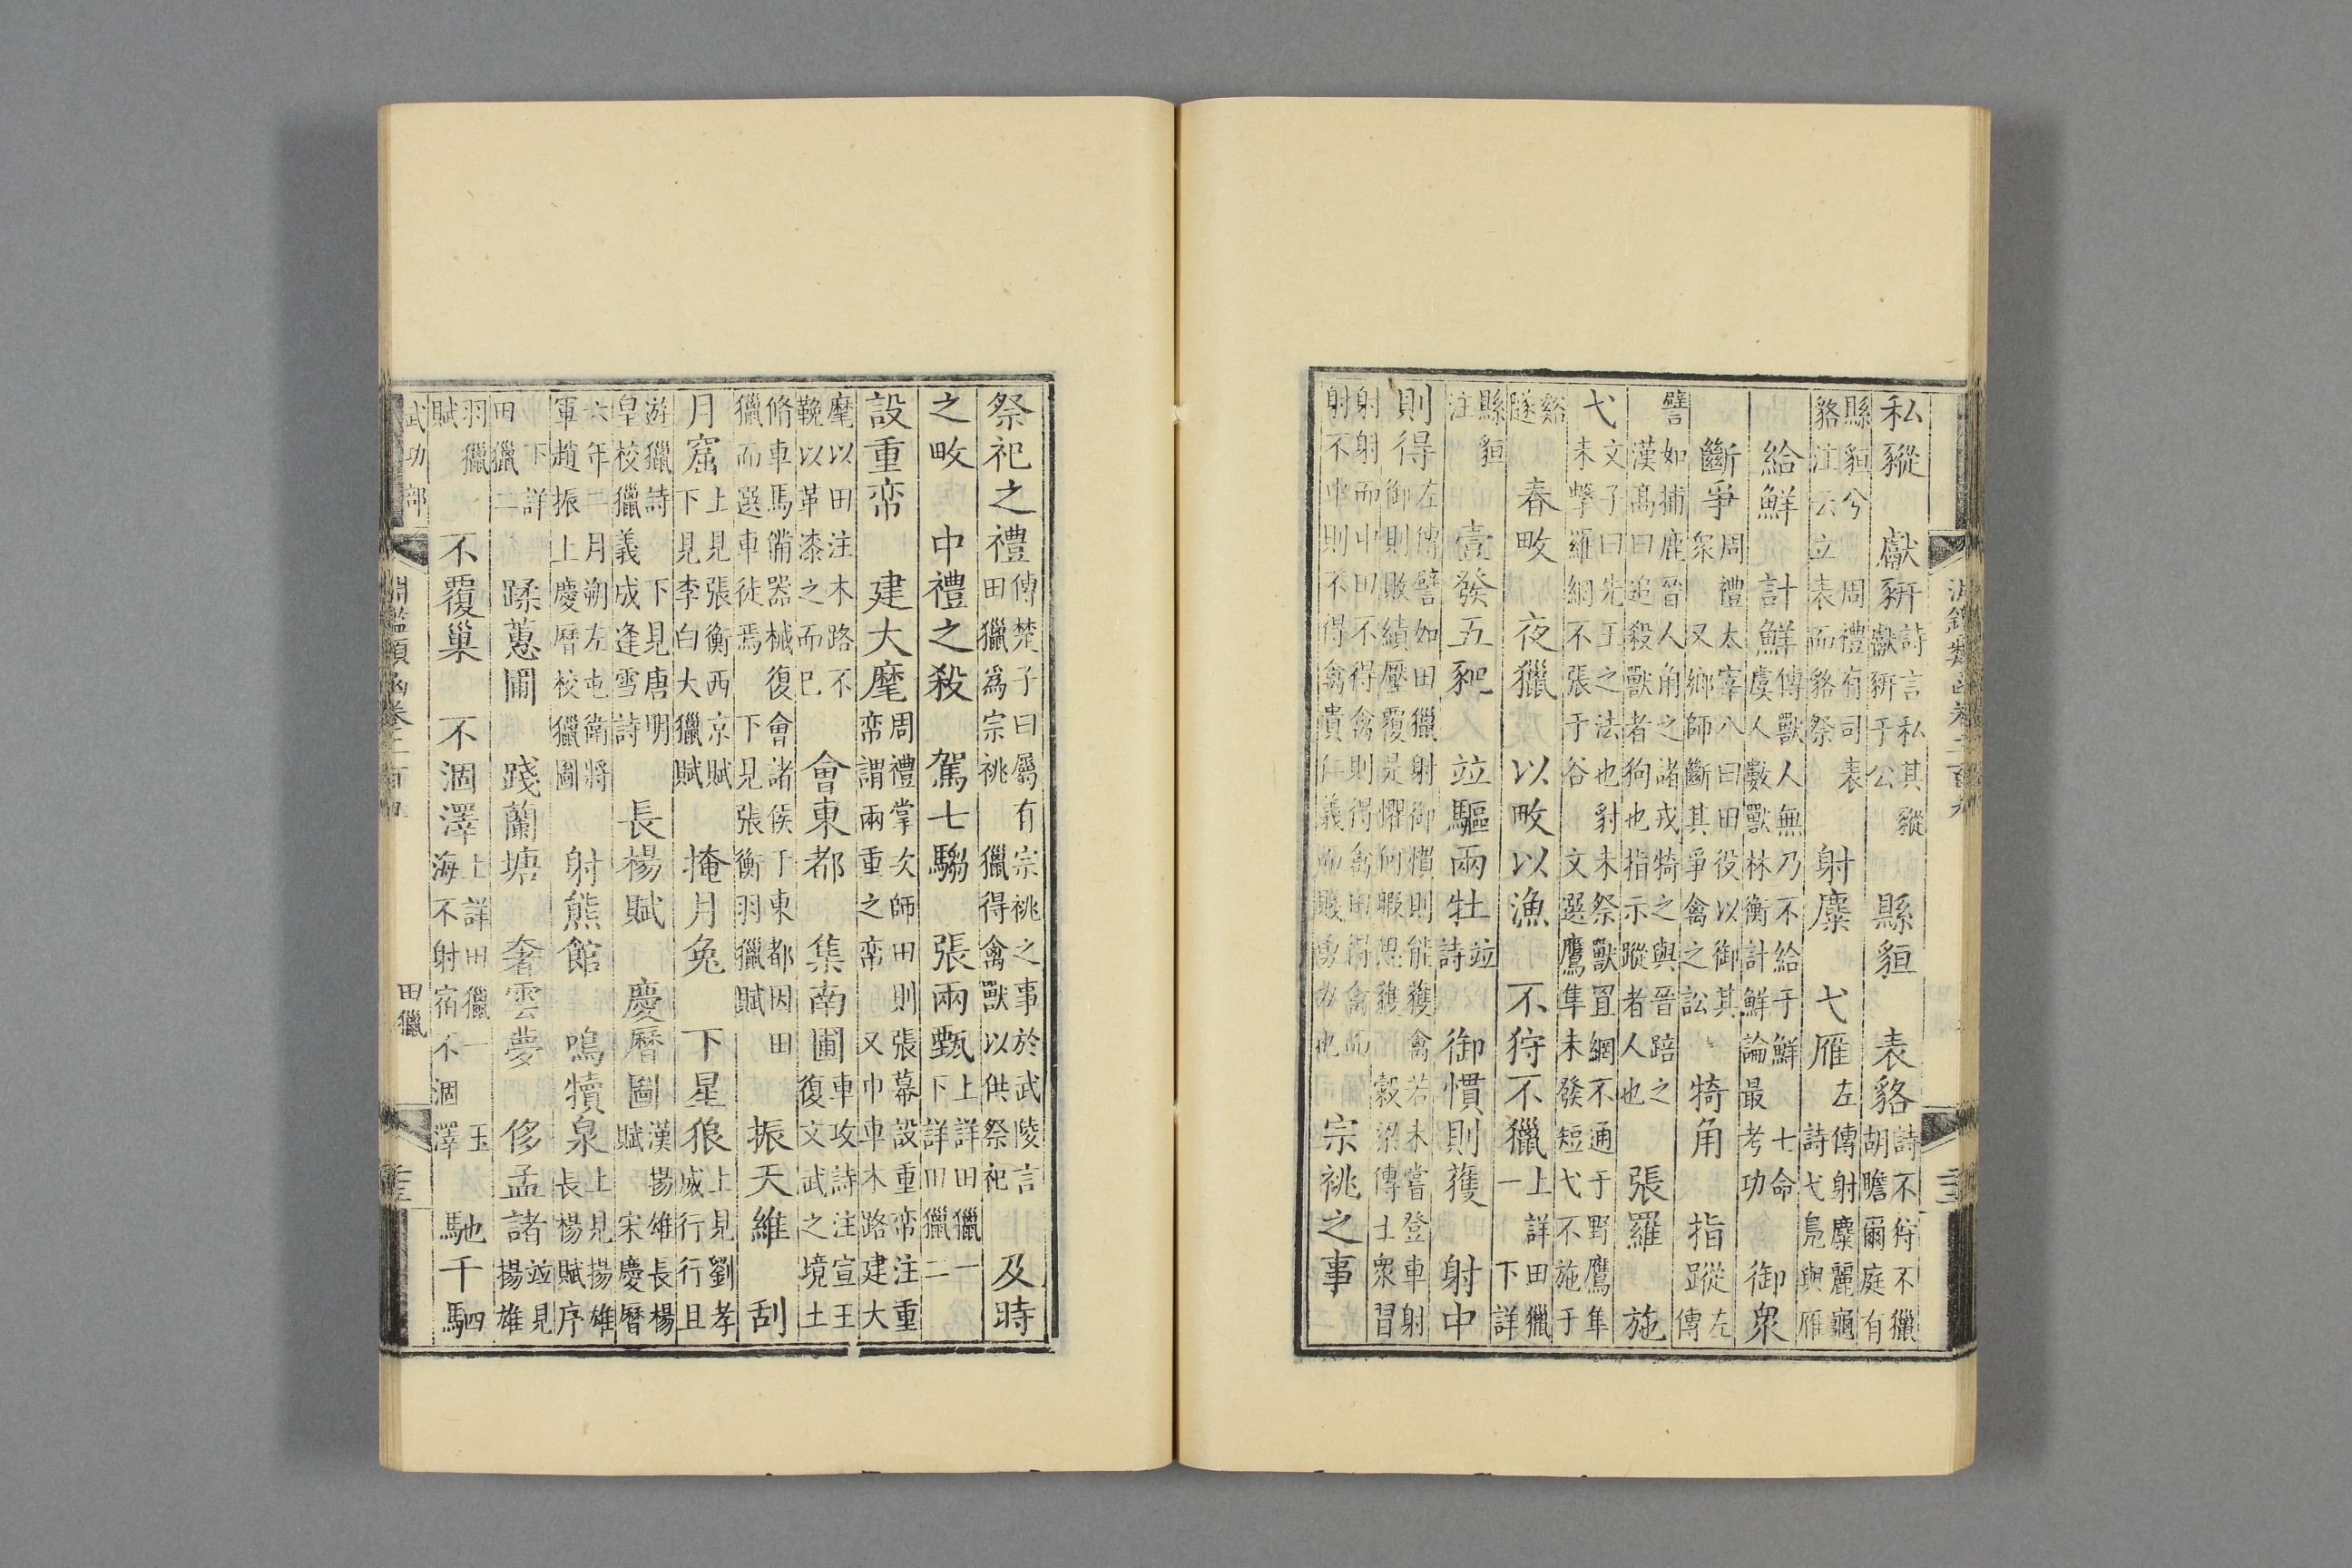 淵鑑類函卷二百九
私豵 獻豜 詩言私其豵獻豜于公 縣貆 表貉 詩不狩不獵胡瞻爾庭有
縣貆兮 周禮有司表貉注云立表而貉祭 射麋 弋雁 左傳射麋麗龜詩弋鳧與雁
給鮮 計鮮 傳獸人無乃不給于鮮 七命虞人數獸林衡計鮮論最考功 御衆
斷爭 周禮太宰八曰田役以御其衆又鄉師斷其爭禽之訟 犄角 指蹤 左傳
譬如捕鹿晉人角之諸戎犄之與晉踣之漢高曰追殺獸者狗也指示蹤者人也 張羅 施
弋 文子曰先王之法也豺未祭獸罝網不通于野鷹隼未擊羅網不張于谷文選鷹隼未發短弋不施于
谿隧 春畋 夜獵 以畋以漁 不狩不獵 上詳田獵一下詳
縣貆注 壹發五豝 竝驅兩牡 竝詩 御慣則獲 射中
則得 左傳譬如田獵射御慣則能獲禽若未嘗登車射御則敗績壓覆是懼何暇思獲 穀梁傳士衆習
射射而中田不得禽則得禽田得禽而射不中則不得禽貴仁義而賤勇力也 宗祧之事
祭祀之禮 傳楚子曰屬有宗祧之事於武陵言田獵爲宗祧 獵得禽獸以供祭祀 及時
之畋 中禮之殺 駕七騶 張兩甄 上詳田獵一下詳田獵二
設重帟 建大麾 周禮掌次師田則張幕設重帟注重帟謂兩重之帟又巾車木路建大
麾以田注木路不鞔以革漆之而已 會東都 集南圃 車攻詩注宣王復文武之境土
脩車馬備器械復會諸侯于東都因田獵而選車徒焉 下見張衡羽獵賦 振天維 刮
月窟 上見張衡西京賦下見李白大獵賦 掩月兔 下星狼 上見劉孝威行行且
遊獵詩 下見唐明皇校獵義成逢雪詩 長楊賦 慶曆圖 漢揚雄長楊賦 宋慶曆
六年二月朔左屯衛將軍趙振上慶曆校獵圖 射熊館 嗚犢泉 上見揚雄長楊賦序
下詳田獵二 蹂蕙圃 踐蘭塘 奢雲夢 侈孟諸 竝見揚雄
羽獵賦 不覆巢 不涸澤 上詳田獵一 玉海不射宿不涸澤 馳千駟
武功部 淵鑑類函卷二百九 田獵